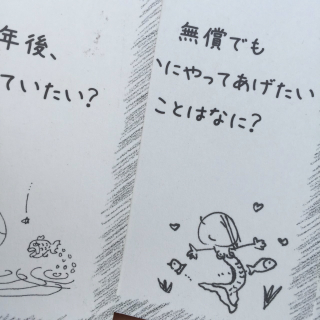 年後、
ていたい?
無償でも
いにやってあげたい
ことはなに?